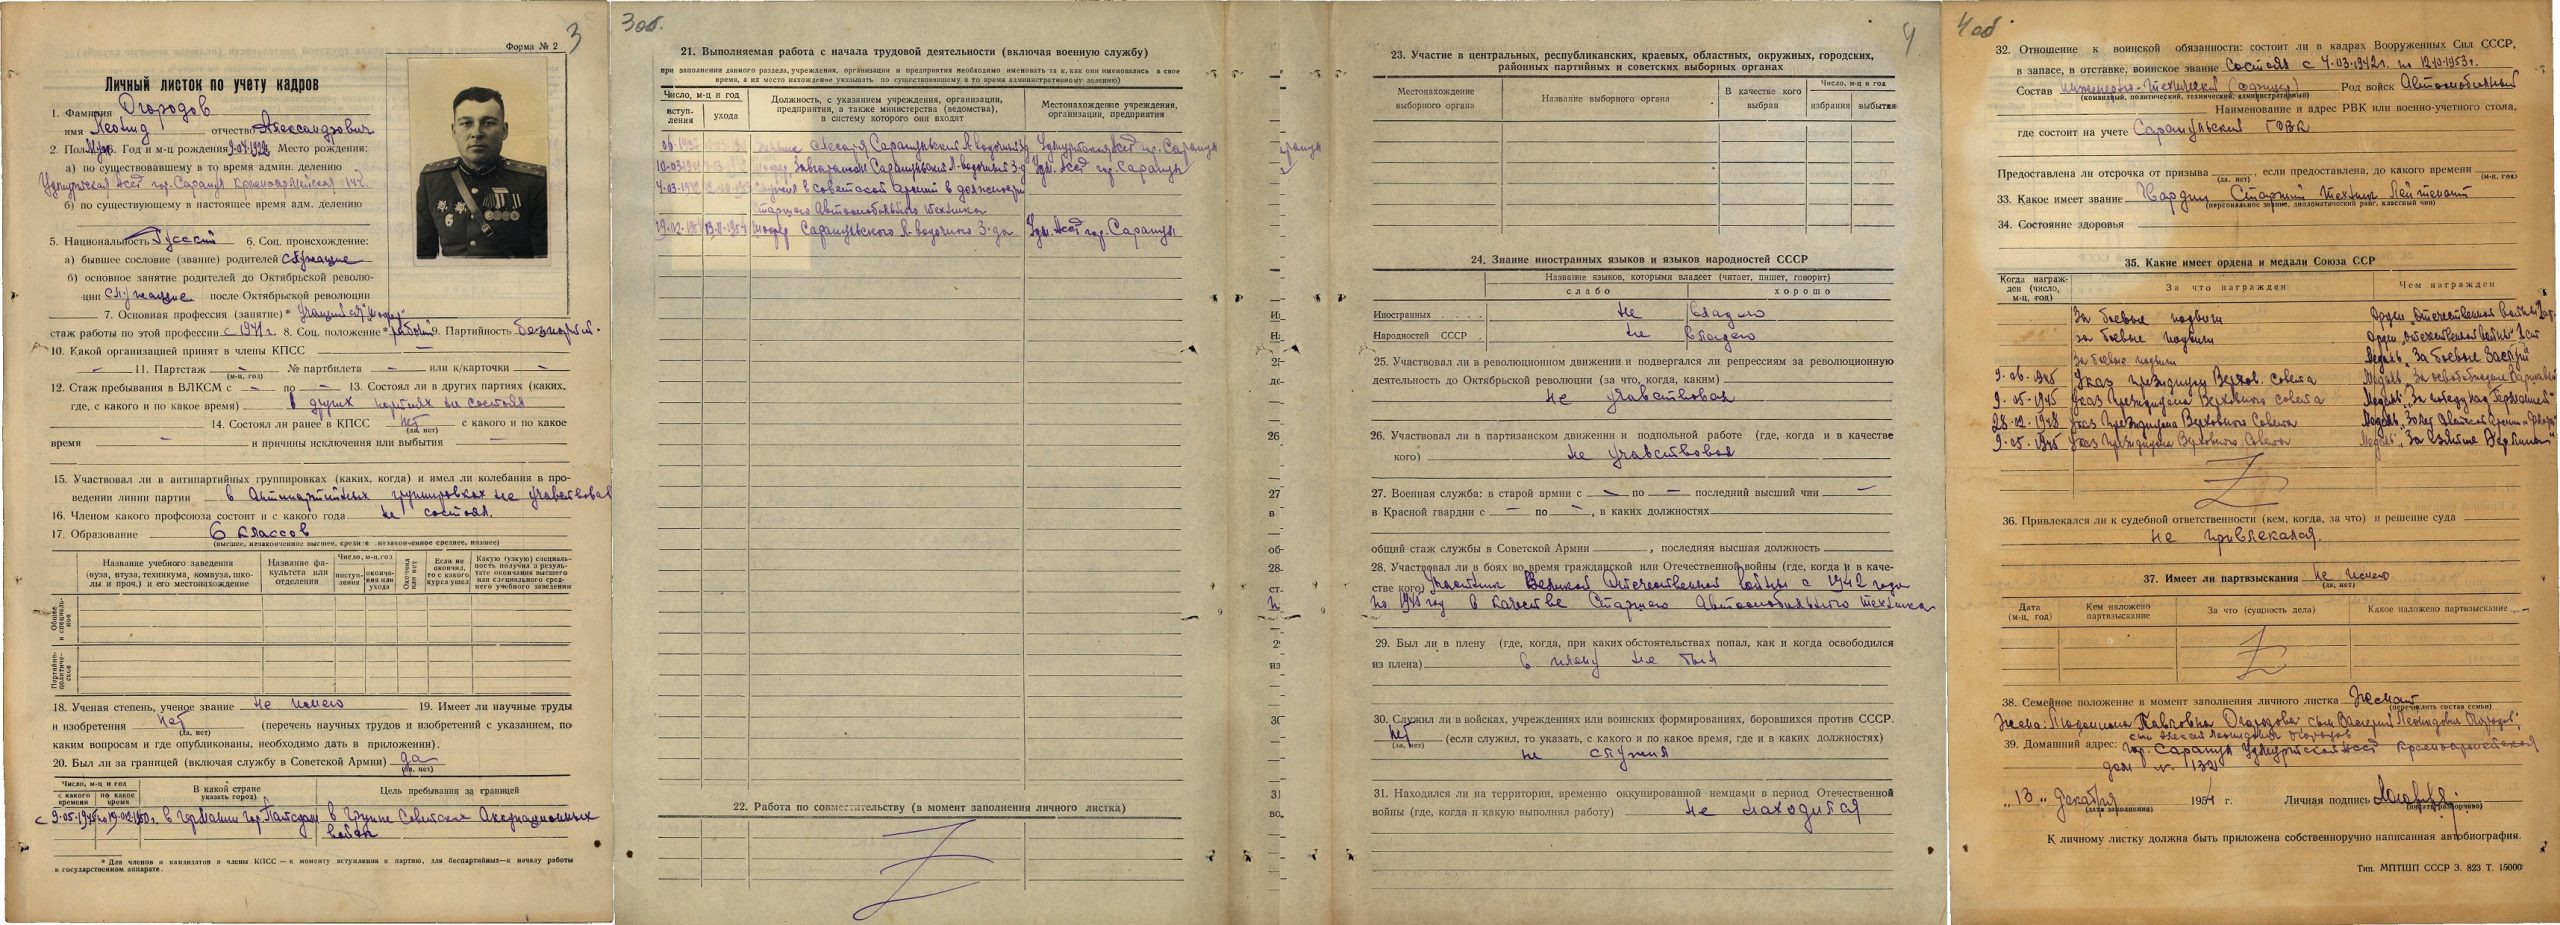 3
Форма № 2
Личный листок по учету кадров
1. Фамилия Огородов
имя Леонид отчество Александрович
2. Пол Муж 3. Год и м-ц рождения 9-04-1922 Место рождения:
а) по существовавшему в то время админ. делению
Удмуртская АССР гор. Сарапул Красноармейская
б) по существующему в настоящее время адм. делению
5. Национальность Русский 6. Соц. происхождение:
а) бывшее сословие (звание) родителей служащие
б) основное занятие родителей до Октябрьской револю-
ции служащие после Октябрьской революции
7. Основная профессия (занятие)*
стаж работы по этой профессии с 1941 г 8. Соц. положение* рабочий 9. Партийность
10. Какой организацией принят в члены КПСС —
— 11. Партстаж — № партбилета — или к/карточки —
(м-ц, год)
12. Стаж пребывания в ВЛКСМ с — по — 13. Состоял ли в других партиях (каких,
где, с какого и по какое время) в других партиях не состоял
14. Состоял ли ранее в КПСС нет с какого и по какое
(да, нет)
время — и причины исключения или выбытия —
15. Участвовал ли в антипартийных группировках (каких, когда) и имел ли колебания в про-
ведении линии партии в Антипартийных группировках не учавствовал
16. Членом какого профсоюза состоит и с какого года не состоял.
17. Образование 6 классов
(высшее, незаконченное высшее, среднее, незаконченное среднее, низшее)
Название учебного заведения (вуза, втуза, техникума, комвуза, шко-лы и проч.) и его местонахождение
Название фа-культета или отделения
Число, м-ц, год
поступ-ления
оконча-ния или ухода
Окончил или нет
Если не окончил, то с какого курса ушел
Какую (узкую) специаль-ность получил в резуль-тате окончания высшего или специального сред-него учебного заведения
Общее и специаль-ное
Партийно-политиче-ское
18. Ученая степень, ученое звание не имею 19. Имеет ли научные труды
и изобретения нет (перечень научных трудов и изобретений с указанием, по
(да, нет)
каким вопросам и где опубликованы, необходимо дать в приложении).
20. Был ли за границей (включая службу в Советской Армии) да
(да, нет)
Число, м-ц и год
с какого времени
по какое время
В какой стране
указать город)
Цель пребывания за границей
с 9-05-1945 по 19-02-1950г. в Германии гор. в Группе Советских Оккупационных
войск
* Для членов и кандидатов в члены КПСС — к моменту вступления в партию, для беспартийных—к началу работы
в государственном аппарате.
3 об.
21. Выполняемая работа с начала трудовой деятельности (включая военную службу)
при заполнении данного раздела, учреждения, организации и предприятия необходимо именовать так, как они именовались в свое
время, а их место нахождение указывать по существовавшему в то время административному делению)
Число, м-ц и год
вступ-ления
ухода
Должность, с указанием учреждения, организации,
предприятия, а также министерства (ведомства),
в систему которого они входят
Местонахождение учреждения,
организации, предприятия
слесаря Сарапульский Л-водочный з-д Удмуртская АССР гор. Сарапул
10-03-1941 Сарапульский Л-водочный з-д Удм. АССР гор. Сарапул
4-03-1942 Служил в советской армии в должности
Старшего Автомобильного техника
19-02-1954 13-11-1954 шофер Сарапульского Л-водочного з-да Удм. АССР гор. Сарапул
22. Работа по совместительству (в момент заполнения личного листка)
4
23. Участие в центральных, республиканских, краевых, областных, окружных, городских,
районных партийных и советских выборных органах
Местонахождение
выборного органа
Название выборного органа
В качестве кого
выбран
Число, м-ц и год
избрания
выбытия
24. Знание иностранных языков и языков народностей СССР
Название языков, которыми владеет (читает, пишет, говорит)
слабо
хорошо
Иностранных . . . . не владею
Народностей СССР . не владею
25. Участвовал ли в революционном движении и подвергался ли репрессиям за революционную
деятельность до Октябрьской революции (за что, когда, каким)
не учавствовал
26. Участвовал ли в партизанском движении и подпольной работе (где, когда и в качестве
кого) не учавствовал
27. Военная служба: в старой армии с — по — последний высший чин —
в Красной гвардии с — по —, в каких должностях
общий стаж службы в Советской Армии , последняя высшая должность
28. Участвовал ли в боях во время гражданской или Отечественной войны (где, когда и в каче-
стве кого) Участник Великой Отечественной войны с 1942 года
по 1945 год в качестве Старшего Автомобильного техника
29. Был ли в плену (где, когда, при каких обстоятельствах попал, как и когда освободился
из плена) в плену не был
30. Служил ли в войсках, учреждениях или воинских формированиях, боровшихся против СССР.
нет (если служил, то указать, с какого и по какое время, где и в каких должностях)
(да, нет)
не служил
31. Находился ли на территории, временно оккупированной немцами в период Отечественной
войны (где, когда и какую выполнял работу) не находился
4 об
32. Отношение к воинской обязанности: состоит ли в кадрах Вооруженных Сил СССР,
в запасе, в отставке, воинское звание состоял с 4-03-1942г. по 12-10-1953г.
Состав инженерно-технический (офицер) Род войск Автомобильный
(командный, политический, технический, административный)
Наименование и адрес РВК или военно-учетного стола,
где состоит на учете Сарапульский ГВК
Предоставлена ли отсрочка от призыва , если предоставлена, до какого времени
(да, нет) (м-ц, год)
33. Какое имеет звание Старший техник Лейтенант
(персональное звание, дипломатический ранг, классный чин)
34. Состояние здоровья
35. Какие имеет ордена и медали Союза ССР
Когда награж-ден (число, м-ц, год)
За что награжден
Чем награжден
За боевые подвиги Орден „Отечественной войны"
за боевые подвиги Орден „отечественной войны"
За боевые подвиги Медаль „За боевые Заслуги"
9-06-1945 Указ президиума Верхов. совета Медаль „За освобождение Варшавы"
9-05-1945 Указ Президиума Верховного совета Медаль „За победу над Германией"
28-02-1948 Указ Президиума Верховного Совета Медаль
9-05-1945 Указ Президиума Верховного Совета Медаль „За взятие Берлина"
36. Привлекался ли к судебной ответственности (кем, когда, за что) и решение суда
не привлекался.
37. Имеет ли партвзыскания не имею
(да, нет)
Дата
(м-ц, год)
Кем наложено
партвзыскание
За что (сущность дела)
Какое наложено партвзыскание
38. Семейное положение в момент заполнения личного листка Женат
(перечислить состав семьи)
Жена: Людмила Павловна Огородова сын Валерий Леонидович Огородов,
сын Алексей Леонидович Огородов
39. Домашний адрес: гор. Сарапул Удмуртской АССР Красноармейская
дом №
„13" Декабря 1954 г. Личная подпись
(дата заполнения) (писать разборчиво)
К личному листку должна быть приложена собственноручно написанная автобиография.
Тип. МПТШП СССР З. 823 Т. 15000